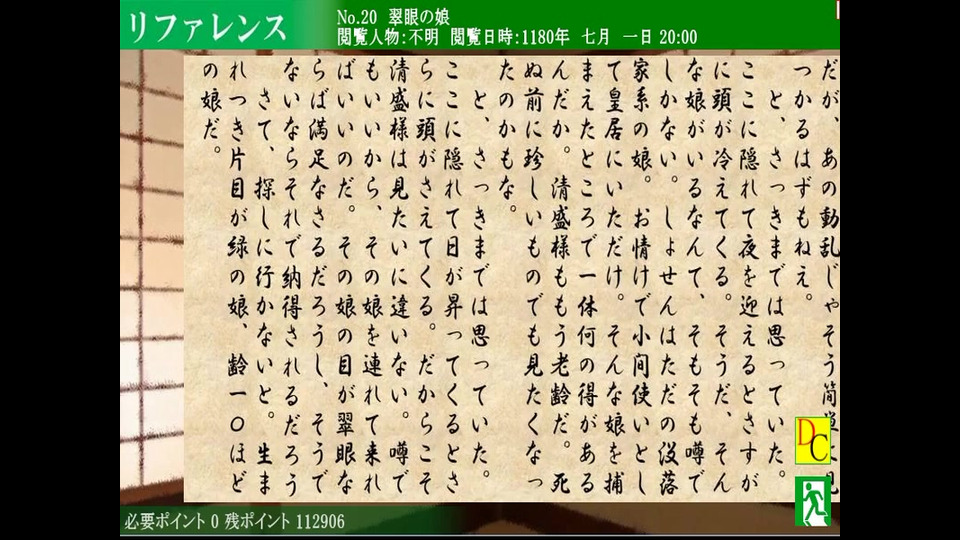 リファレンス
No.20 翠眼の娘
閲覧人物:不明 閲覧日時:1180年 七月 一日 20:00
だが、あの動乱じゃそう簡単に見
つかるはずもねえ。
と、さっきまでは思っていた。
ここに隠れて夜を迎えるとさすが
に頭が冷えてくる。そうだ、そん
な娘がいるなんて、そもそも噂で
しかない。しょせんはただの没落
家系の娘。お情けで小間使いとし
て皇居にいただけ。そんな娘を捕
まえたところで一体何の得がある
んだか。清盛様ももう老齢だ。死
ぬ前に珍しいものでも見たくなっ
たのかもな。
と、さっきまでは思っていた。
ここに隠れて日が昇ってくるとさ
らに頭がさえてくる。だからこそ
清盛様は見たいに違いない。噂で
もいいから、その娘を連れて来れ
ばいいのだ。その娘の目が翠眼な
らば満足なさるだろうし、そうで
ないならそれで納得されるだろう
さて、探しに行かないと。生ま
れつき片目が緑の娘、齢一〇ほど
の娘だ。
DC
必要ポイント 0 残ポイント 112906